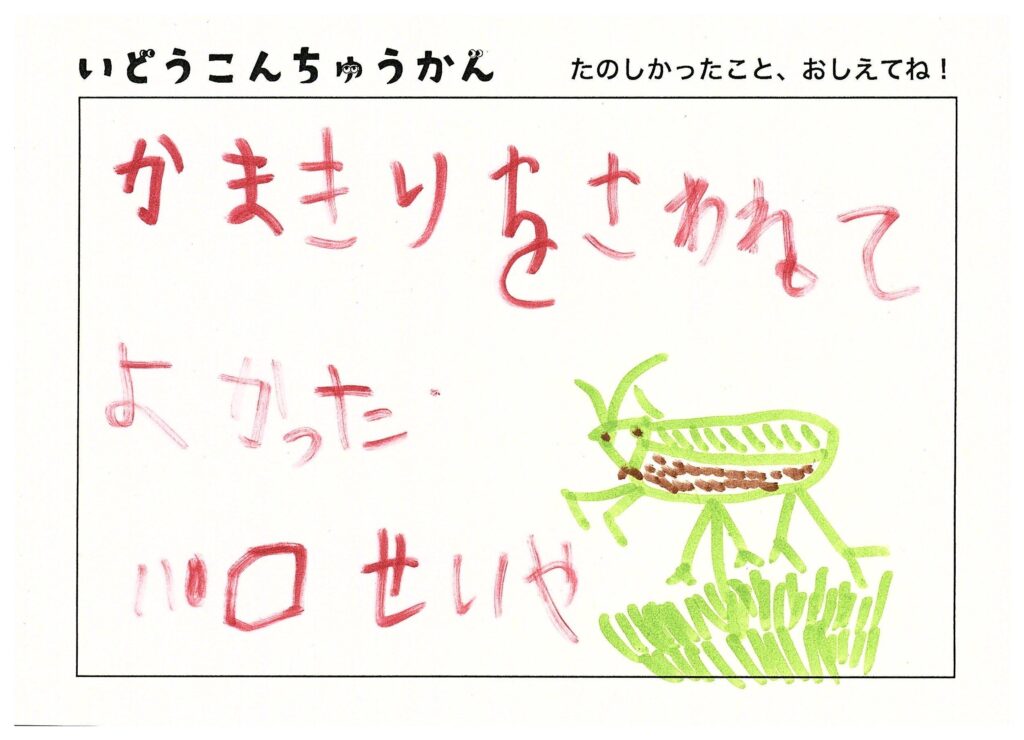 いどうこんちゅうかん
たのしかったこと、おしえてね！
かまきりをさわれて
よかった.
川口せいや